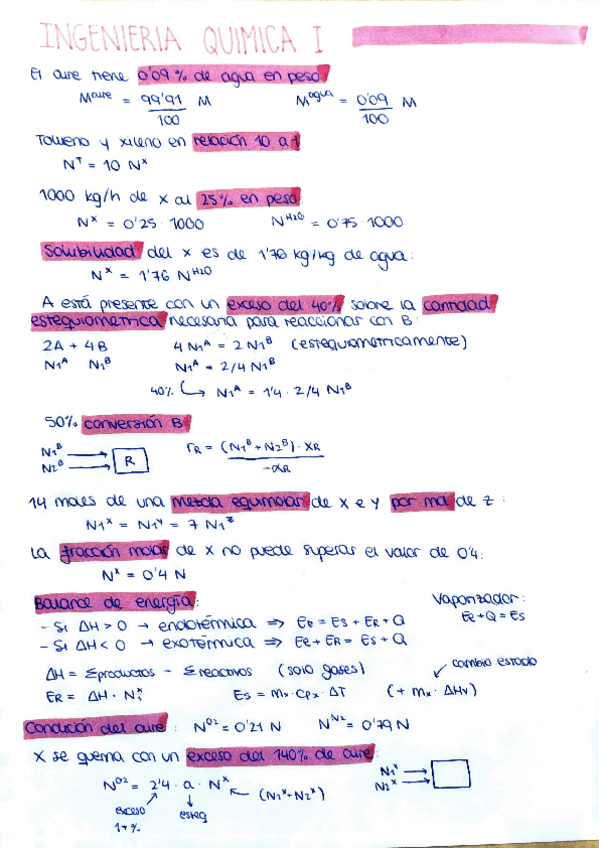 INGENIERIA QUIMICA I
El aire tiene 0'09% de agua en peso
M^aire = 99'91/100 M M^agua = 0'09/100 M
Tolueno y xileno en relación 10 a 1
N^T = 10 N^X
1000 kg/h de x al 25% en peso
N^X = 0'25 · 1000 N^H2O = 0'75 · 1000
Solubilidad del x es de 1'76 kg/kg de agua:
N^X = 1'76 N^H2O
A está presente con un exceso del 40% sobre la cantidad
estequiometrica necesaria para reaccionar con B:
2A + 4B 4 N1^A = 2 N1^B (estequiometricamente)
N1^A N1^B N1^A = 2/4 N1^B
40% ↳ N1^A = 1'4 · 2/4 N1^B
50% conversión B
N1^B → R rR = (N1^B + N2^B) · XR / -αR
N2^B →
14 moles de una mezcla equimolar de x e y por mol de z:
N1^X = N1^Y = 7 N1^Z
La fracción molar de x no puede superar el valor de 0'4:
N^X = 0'4 N
Balance de energía: Vaporizador:
- Si ΔH > 0 → endotérmica ⇒ Ee = Es + ER + Q Ee + Q = Es
- Si ΔH < 0 → exotérmica ⇒ Ee + ER = Es + Q
ΔH = Σproductos - Σreactivos (solo gases) cambio estado
ER = ΔH · Ni^X Es = mx · cpx · ΔT (+ mx · ΔHv)
Condición del aire: N^O2 = 0'21 N N^N2 = 0'79 N
X se quema con un exceso del 140% de aire:
N^O2 = 2'4 · a · N^X ← (N1^X + N2^X) N1^X →
N2^X →
exceso esteq
1 + %